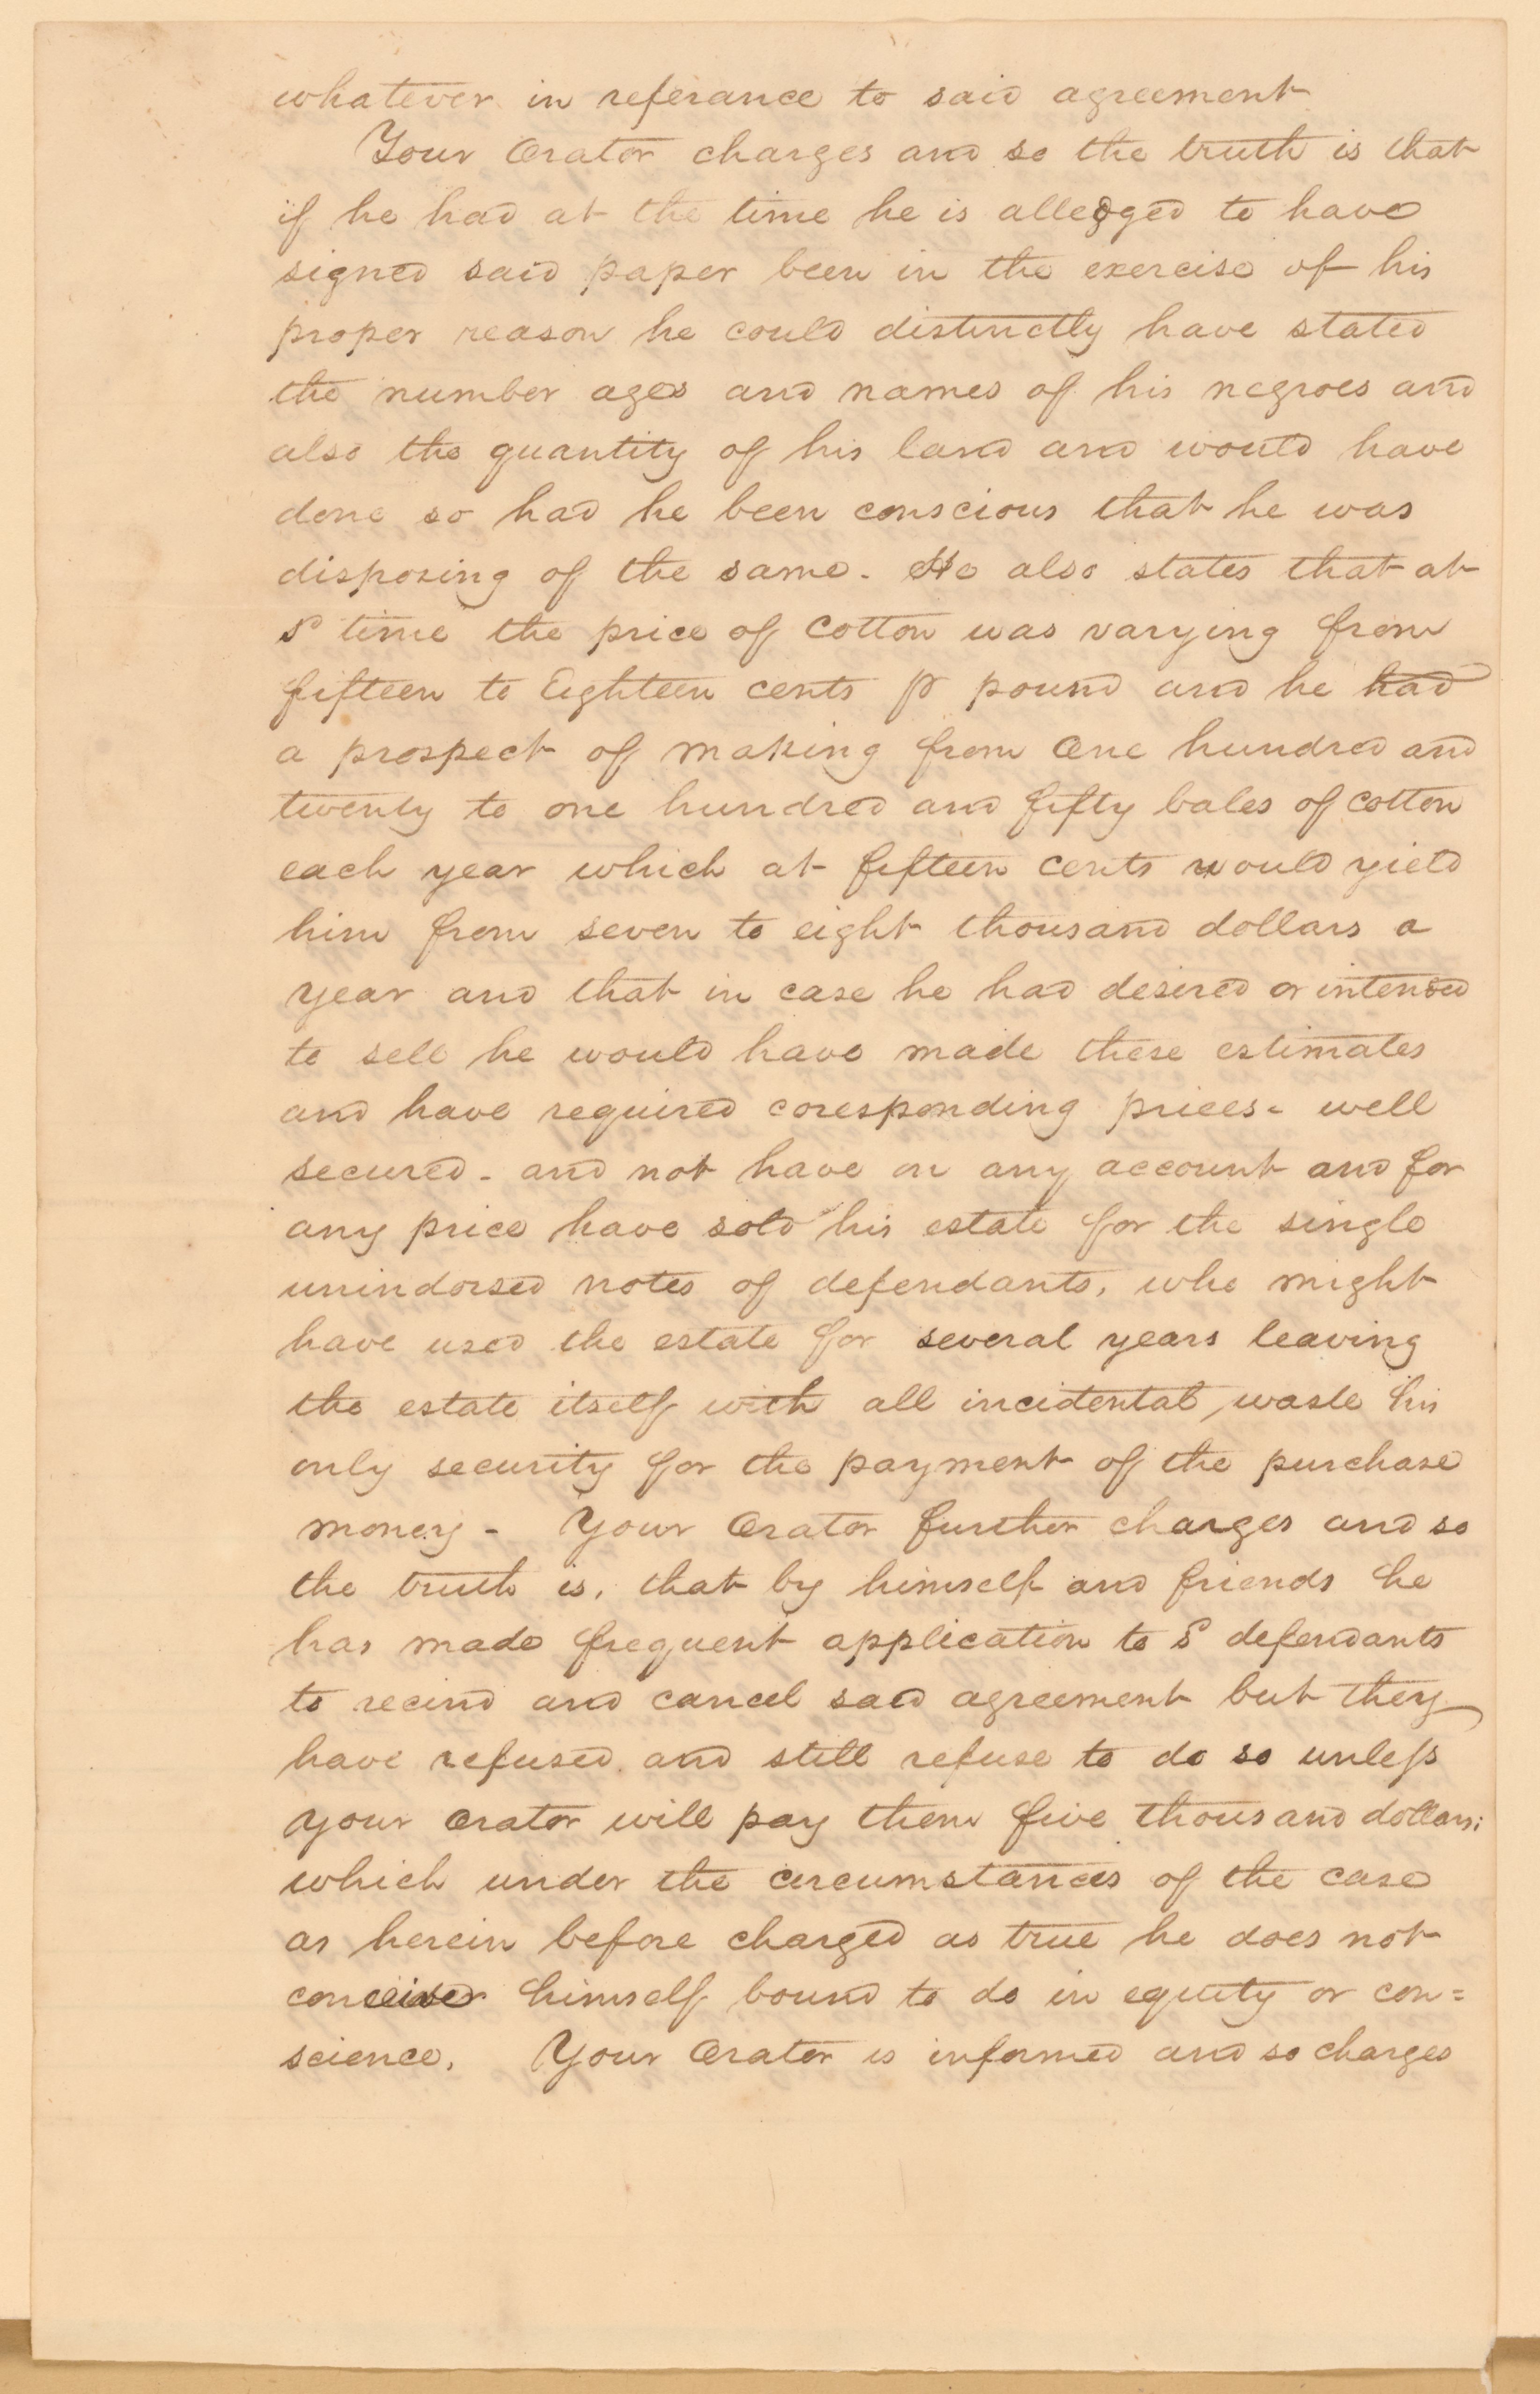 whatever in referance to said agreement
Your Orator charges and so the truth is that
if he had at the time he is alledged to have
signed said paper been in the exercise of his
proper reason he could distinctly have stated
the number ages and names of his negroes and
also the quantity of his land and would have
done so had he been conscious that he was
disposing of the same. He also states that at
sd time the price of Cotton was varying from
fifteen to Eighteen cents pr pound and he had
a prospect of making from One hundred and
twenty to one hundred and fifty bales of cotton
each year which at fifteen cents would yield
him from seven to eight thousand dollars a
year and that in case he had desired or intended
to sell he would have made these estimates
and have required coresponding prices - well
secured - and not have on any account and for
any price have sold his estate for the single
unindorsed notes of defendants, who might
have used the estate for several years leaving
the estate itself with all incidental waste his
only security for the payment of the purchase
money - Your Orator further charges and so
the truth is, that by himself and friends he
has made frequent application to sd defendants
to recind and cancel said agreement but they
have refused and still refuse to do so unless
your Orator will pay them five thousand dollars;
which under the circumstances of the case
as herein before charged as true he does not
conceive himself bound to do in equity or con=
science. Your Orator is informed and so charges